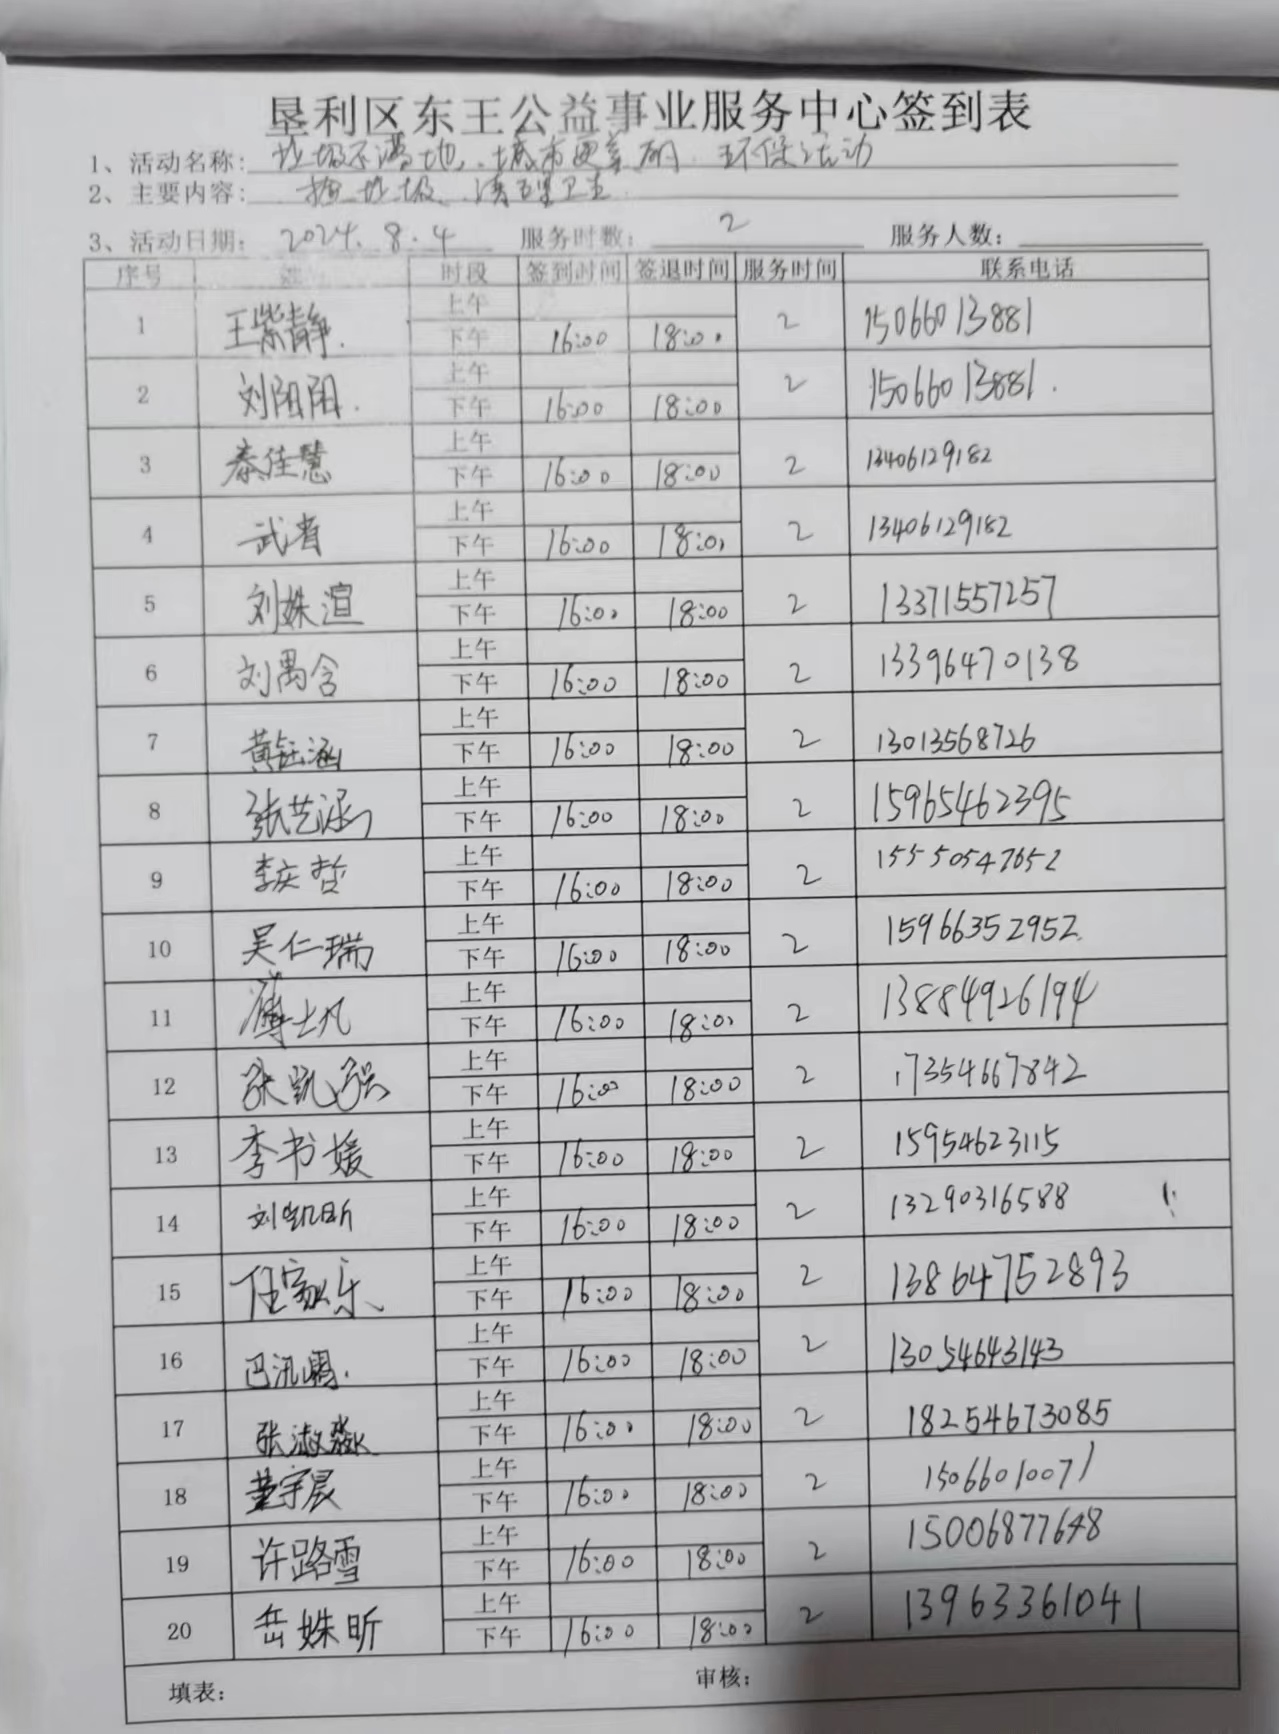 垦利区东王公益事业服务中心签到表
1、活动名称: 垃圾不落地、城市更美丽 环保活动
2、主要内容: 捡垃圾、清理卫生
3、活动日期: 2024.8.4 服务时数: 2 服务人数:
序号 姓 时段 签到时间 签退时间 服务时间 联系电话
1 王紫静. 上午 2 15066013881
下午 16:00 18:00
2 刘阳阳. 上午 2 15066013881.
下午 16:00 18:00
3 秦佳慧 上午 2 13406129182
下午 16:00 18:00
4 武 上午 2 13406129182
下午 16:00 18:00
5 刘姝渲 上午 2 13371557257
下午 16:00 18:00
6 刘禺含 上午 2 13396470138
下午 16:00 18:00
7 黄钰涵 上午 2 13013568726
下午 16:00 18:00
8 张艺涵 上午 2 15965462395
下午 16:00 18:00
9 李庆哲 上午 2 15550547652
下午 16:00 18:00
10 吴仁瑞 上午 2 15966352952
下午 16:00 18:00
11 薄士凡 上午 2 13884926194
下午 16:00 18:00
12 张凯 上午 2 17354667842
下午 16:00 18:00
13 李书媛 上午 2 15954623115
下午 16:00 18:00
14 刘凯昕 上午 2 13290316588
下午 16:00 18:00
15 任家乐 上午 2 13864752893
下午 16:00 18:00
16 巴汛 上午 2 13054643143
下午 16:00 18:00
17 张淑淼 上午 2 18254673085
下午 16:00 18:00
18 董宇晨 上午 2 15066010071
下午 16:00 18:00
19 许路雪 上午 2 15006877648
下午 16:00 18:00
20 岳姝昕 上午 2 13963361041
下午 16:00 18:00
填表: 审核: